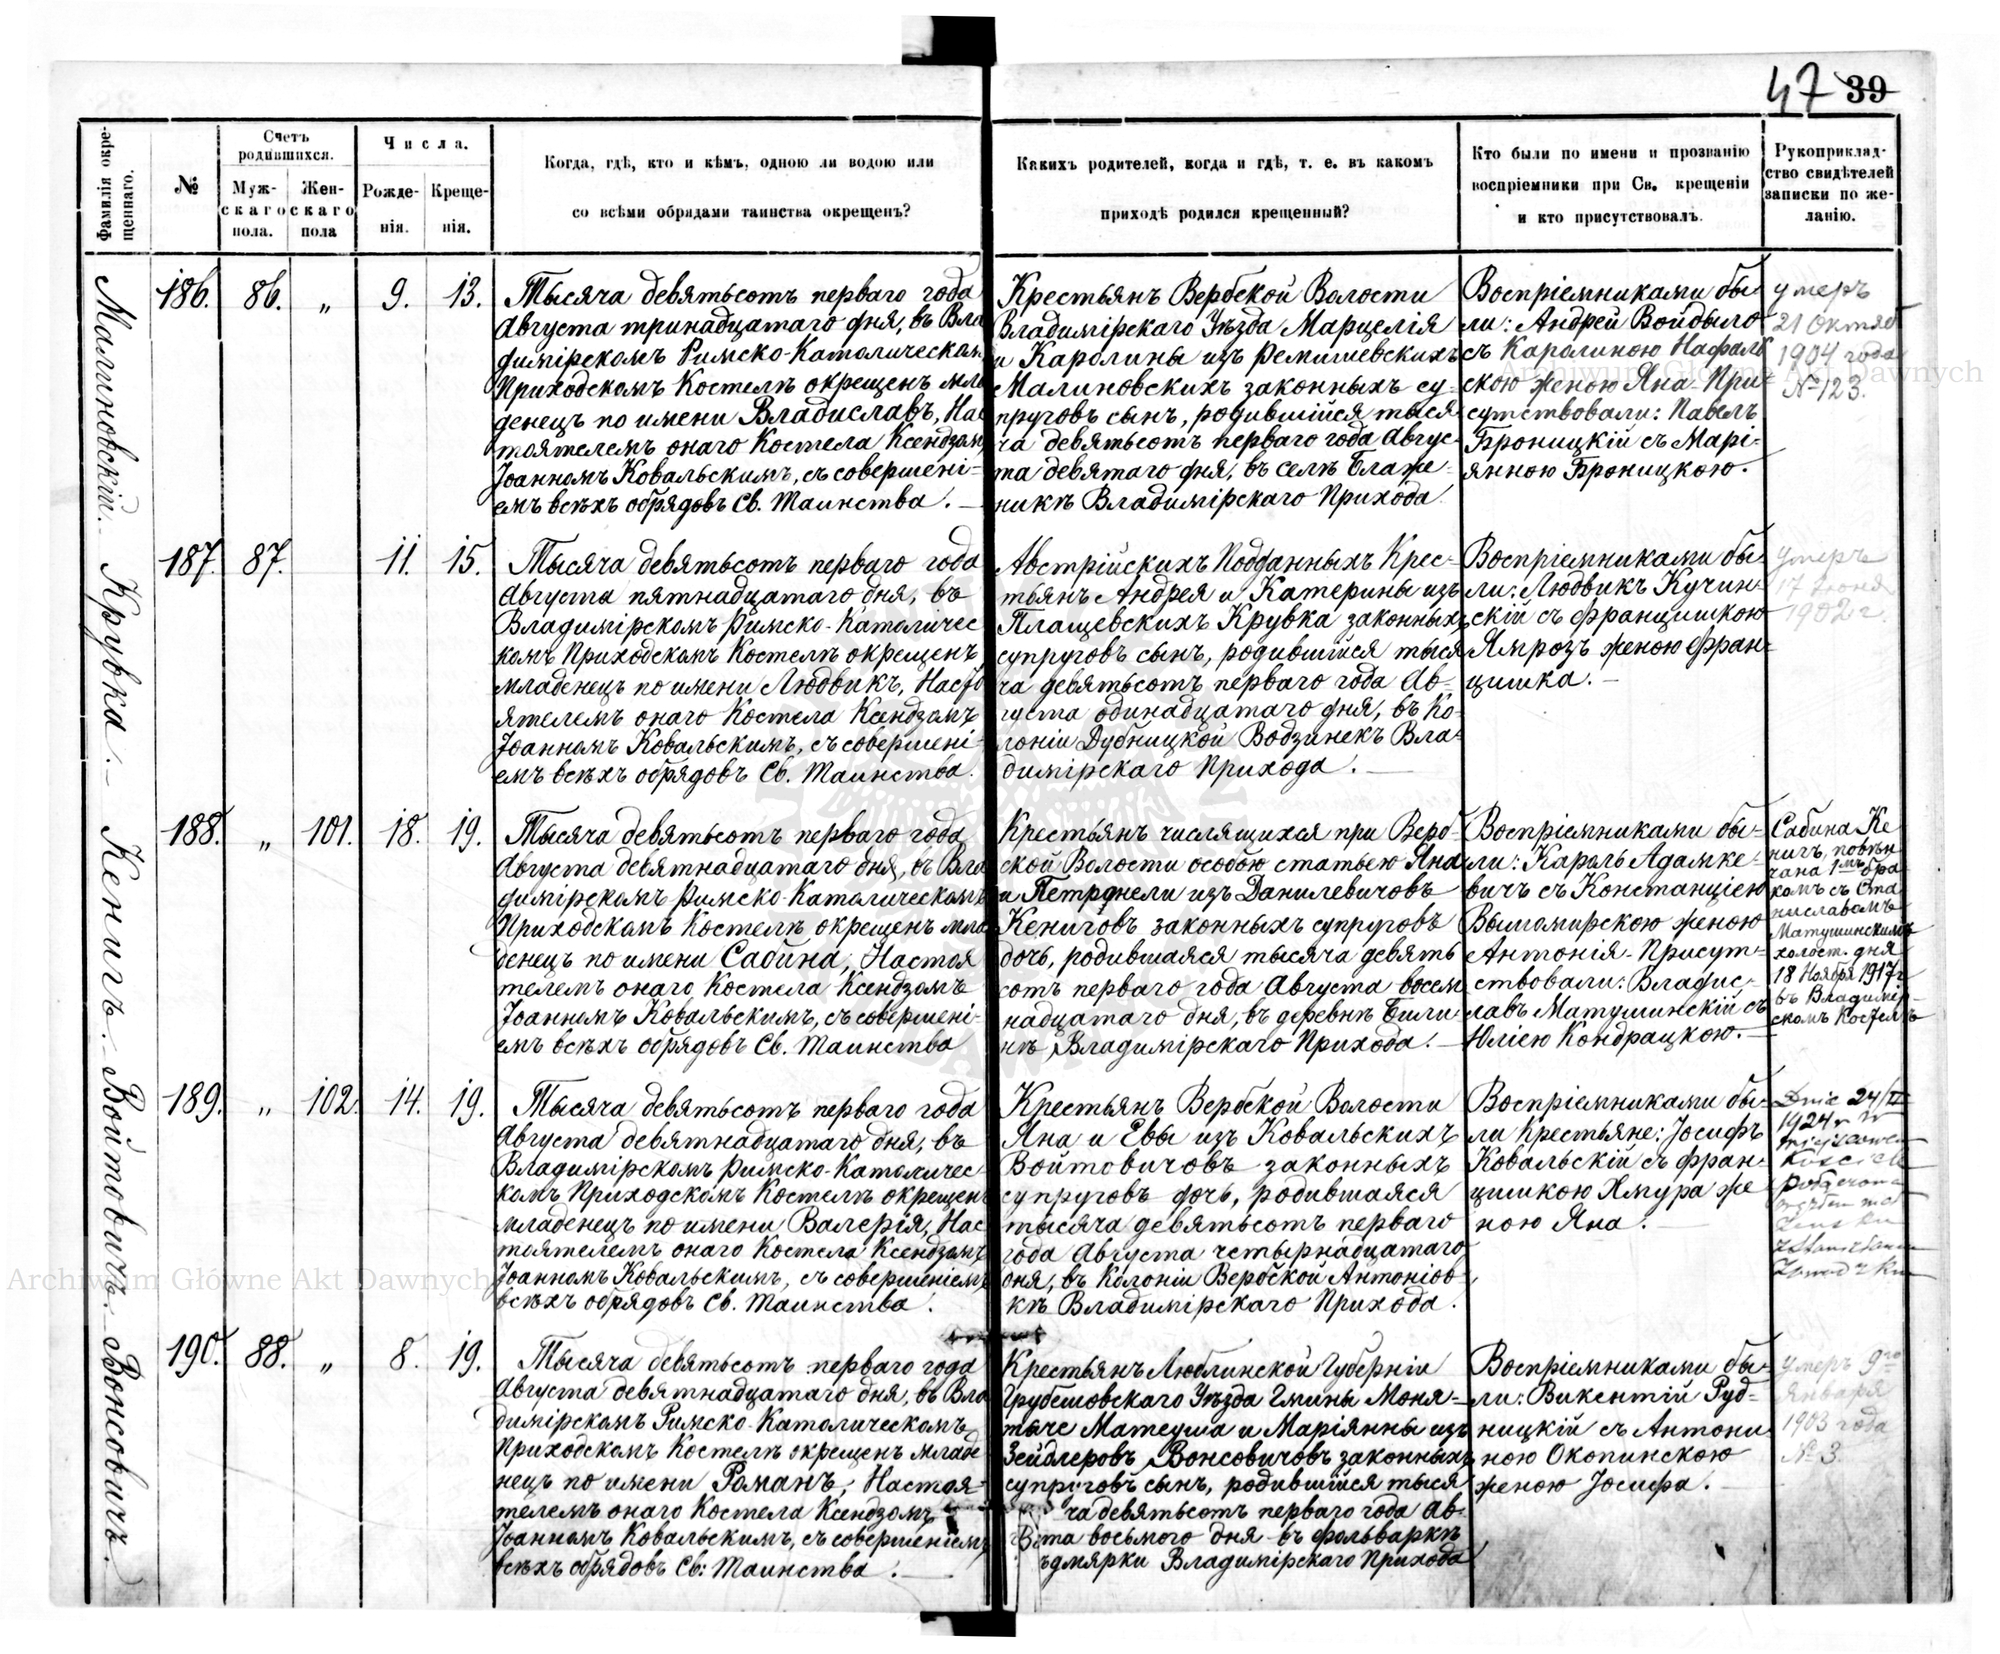 47 39
Фамилія окре-
щеннаго.
№
Счетъ
родившихся.
Муж-
скаго
пола.
Жен-
скаго
пола
Числа.
Рожде-
нія.
Креще-
нія.
Когда, гдѣ, кто и кѣмъ, одною ли водою или
со всѣми обрядами таинства окрещенъ?
Какихъ родителей, когда и гдѣ, т. е. въ какомъ
приходѣ родился крещенный?
Кто были по имени и прозванію
воспріемники при Св. крещеніи
и кто присутствовалъ.
Рукоприклад-
ство свидѣтелей
записки по же-
ланію.
Малиновскій.
186. 86. „ 9. 13.
Тысяча девятьсотъ перваго года
Августа тринадцатаго дня, въ Вла
димірскомъ Римско-Католическом
Приходскомъ Костелѣ окрещенъ мла
денецъ по имени Владиславъ, Нас
тоятелемъ онаго Костела Ксендзомъ
Іоанномъ Ковальскимъ, съ совершені-
емъ всѣхъ обрядовъ Св. Таинства.
Крестьянъ Вербской Волости
Владимірскаго Уѣзда Марцелія
и Каролины изъ Ремишевскихъ
Малиновскихъ законныхъ су-
пруговъ сынъ, родившійся тыся
ча девятьсотъ перваго года Авгус-
та девятаго дня, въ селѣ Блаже-
никѣ Владимірскаго Прихода
Воспріемниками бы-
ли: Андрей Войдыло
съ Каролиною Нафаль
скою женою Яна. При-
сутствовали: Павелъ
Броницкій съ Марі-
янною Броницкою.
умеръ
21 Октяб
1904 года
№ 123.
Крувка.
187. 87. 11. 15.
Тысяча девятьсотъ перваго года
Августа пятнадцатаго дня, въ
Владимірскомъ Римско-Католичес
комъ Приходскомъ Костелѣ окрещенъ
младенецъ по имени Людвикъ, Насто
ятелемъ онаго Костела Ксендзомъ
Іоанномъ Ковальскимъ, съ совершені-
емъ всѣхъ обрядовъ Св. Таинства.
Австрійскихъ Подданныхъ Крес-
тьянъ Андрея и Катерины изъ
Плащевскихъ Крувка законныхъ
супруговъ сынъ, родившійся тыся
ча девятьсотъ перваго года Ав-
густа одинадцатаго дня, въ Ко-
лоніи Дубницкой Водзинек Вла-
димірскаго Прихода.
Воспріемниками бы-
ли: Людвикъ Кучин-
скій съ Францишкою
Ямрозъ женою Фран-
цишка.
умеръ
17 Іюня
1902 г.
Кеничъ.
188. „ 101. 18. 19.
Тысяча девятьсотъ перваго года
Августа девятнадцатаго дня, въ Вла
димірскомъ Римско-Католическомъ
Приходскомъ Костелѣ окрещенъ мла
денецъ по имени Сабина, Настоя
телемъ онаго Костела Ксендзомъ
Іоанномъ Ковальскимъ, съ совершені-
емъ всѣхъ обрядовъ Св. Таинства
Крестьянъ числящихся при Верб-
ской Волости особою статьею Яна
и Петронели изъ Данилевичовъ
Кеничовъ законныхъ супруговъ
дочь, родившаяся тысяча девять
сотъ перваго года Августа восем
надцатаго дня, въ деревнѣ Били
нѣ, Владимірскаго Прихода.
Воспріемниками бы-
ли: Кароль Адамке-
вичъ съ Констанціею
Выгомирскою женою
Антонія. Присут-
ствовали: Владис-
лавъ Матушинскій съ
Юліею Кондрацкою.
Сабина Ке
ничъ, повѣн
чана 1мъ бра
комъ съ Ста
ниславомъ
Матушинскимъ
холост. дня
18 Ноября 1917 г
въ Владимір-
скомъ Костелѣ
Войтовичъ.
189. „ 102. 14. 19.
Тысяча девятьсотъ перваго года
Августа девятнадцатаго дня, въ
Владимірскомъ Римско-Католичес
комъ Приходскомъ Костелѣ окрещенъ
младенецъ по имени Валерія, Нас
тоятелемъ онаго Костела Ксендзомъ
Іоанномъ Ковальскимъ, съ совершеніемъ
всѣхъ обрядовъ Св. Таинства.
Крестьянъ Вербской Волости
Яна и Евы изъ Ковальскихъ
Войтовичовъ законныхъ
супруговъ дочь, родившаяся
тысяча девятьсотъ перваго
года Августа четырнадцатаго
дня, въ Колоніи Вербской Антоніов-
кѣ Владимірскаго Прихода.
Воспріемниками бы-
ли Крестьяне: Іосифъ
Ковальскій съ Фран-
цишкою Ямура же
ною Яна.
Dnie 24/II
1924 r w
Kościele
Вонсовичъ.
190. 88. „ 8. 19.
Тысяча девятьсотъ перваго года
Августа девятнадцатаго дня, въ Вла
димірскомъ Римско-Католическомъ
Приходскомъ Костелѣ окрещенъ младе
нецъ по имени Романъ, Настоя-
телемъ онаго Костела Ксендзомъ
Іоанномъ Ковальскимъ, съ совершеніемъ
всѣхъ обрядовъ Св: Таинства.
Крестьянъ Люблинской Губерніи
Грубешовскаго Уѣзда Гмины Моня-
тыче Матеуша и Маріянны изъ
Зейдлеровъ Вонсовичовъ законныхъ
супруговъ сынъ, родившійся тыся
ча девятьсотъ перваго года Ав-
ста восьмого дня въ фольваркѣ
Владимірскаго Прихода
Воспріемниками бы-
ли: Викентій Руд-
ницкій съ Антони
ною Окопинскою
женою Іосифа.
умеръ 9го
Января
1903 года
№ 3.
Archiwum Główne Akt Dawnych
Archiwum Główne Akt Dawnych